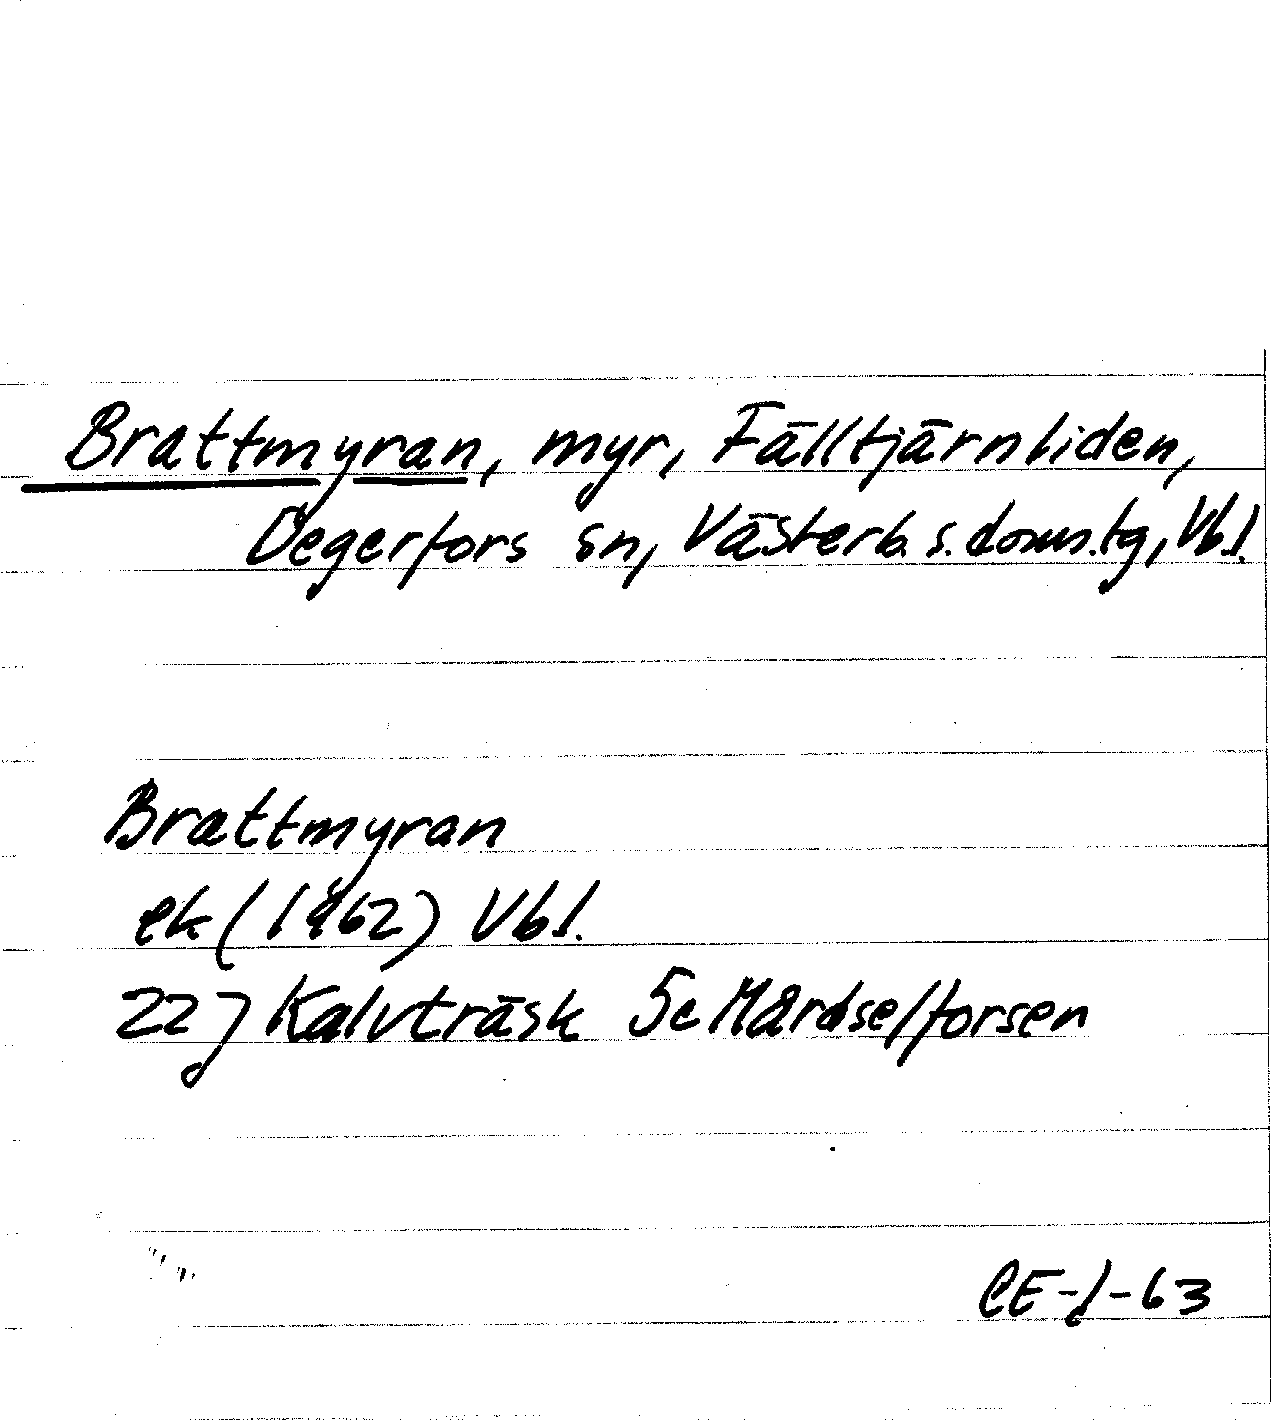 Brattmyran, myr, Fälltjärnliden,
Degerfors sn, Västerb. s. doms.tg, Vbl.
Brattmyran
ek (1962) Vbl.
22 J Kalvträsk 5c Mårdselforsen
CE-1-63